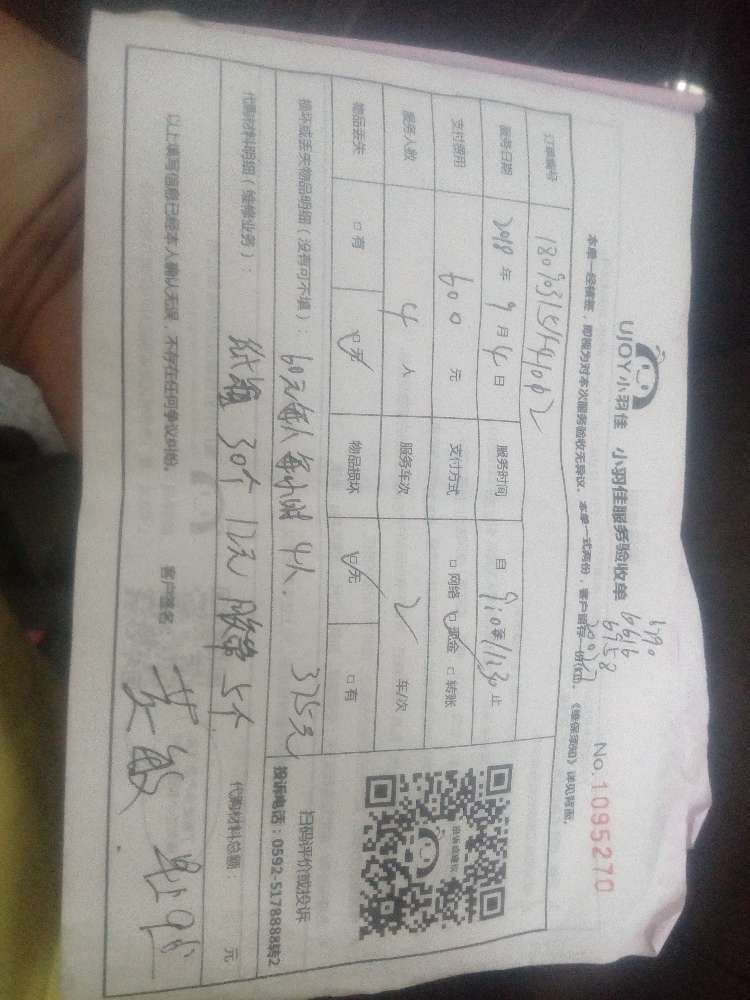 UJOY小羽佳 小羽佳服务验收单
No. 1095270
本单一经签签，即视为对本次服务验收无异议。本单一式两份，客户留存一份(红)，《维保须知》详见背面。
订单编号
服务日期 2018 年 9 月 4 日 服务时间 自 止
支付费用 600 元 支付方式 □ 网络 ☑ 现金 □ 转账
服务人数 4 人 服务车次 2 车/次
物品丢失 □ 有 ☑ 无 物品损坏 ☑ 无 □ 有
扫码评价或投诉
投诉电话：0592-5178888转2
损坏或丢失物品明细（没有可不填）： 60元每人每小时 4人 375元
代购材料明细（维修业务）： 纸箱 30个 12元 胶带 5个 代购材料总额： 元
以上填写信息已经本人确认无误，不存在任何争议纠纷。 客户签名：